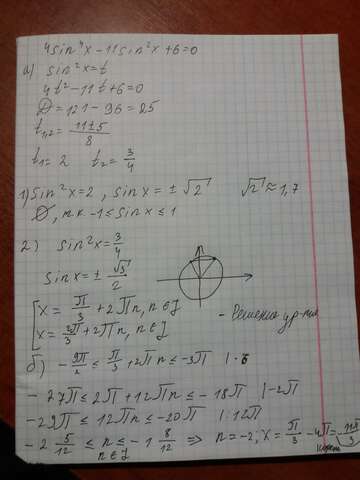 4sin⁴x - 11sin²x + 6 = 0
а) sin²x = t
4t² - 11t + 6 = 0
D = 121 - 96 = 25
t₁,₂ = (11 ± 5)/8
t₁ = 2 t₂ = 3/4
1) sin²x = 2, sinx = ± √2 √2 ≈ 1,7
∅, т.к. -1 ≤ sinx ≤ 1
2) sin²x = 3/4
sinx = ± √3/2
[x = π/3 + 2πn, n∈Z
[x = 2π/3 + 2πn, n∈Z - Решения ур-ния
б) - 9π/2 ≤ π/3 + 2πn ≤ -3π |·6
- 27π ≤ 2π + 12πn ≤ -18π |-2π
- 29π ≤ 12πn ≤ -20π |:12π
- 2 5/12 ≤ n ≤ -1 8/12 ⇒ n = -2; x = π/3 - 4π = - 11π/3
n∈Z